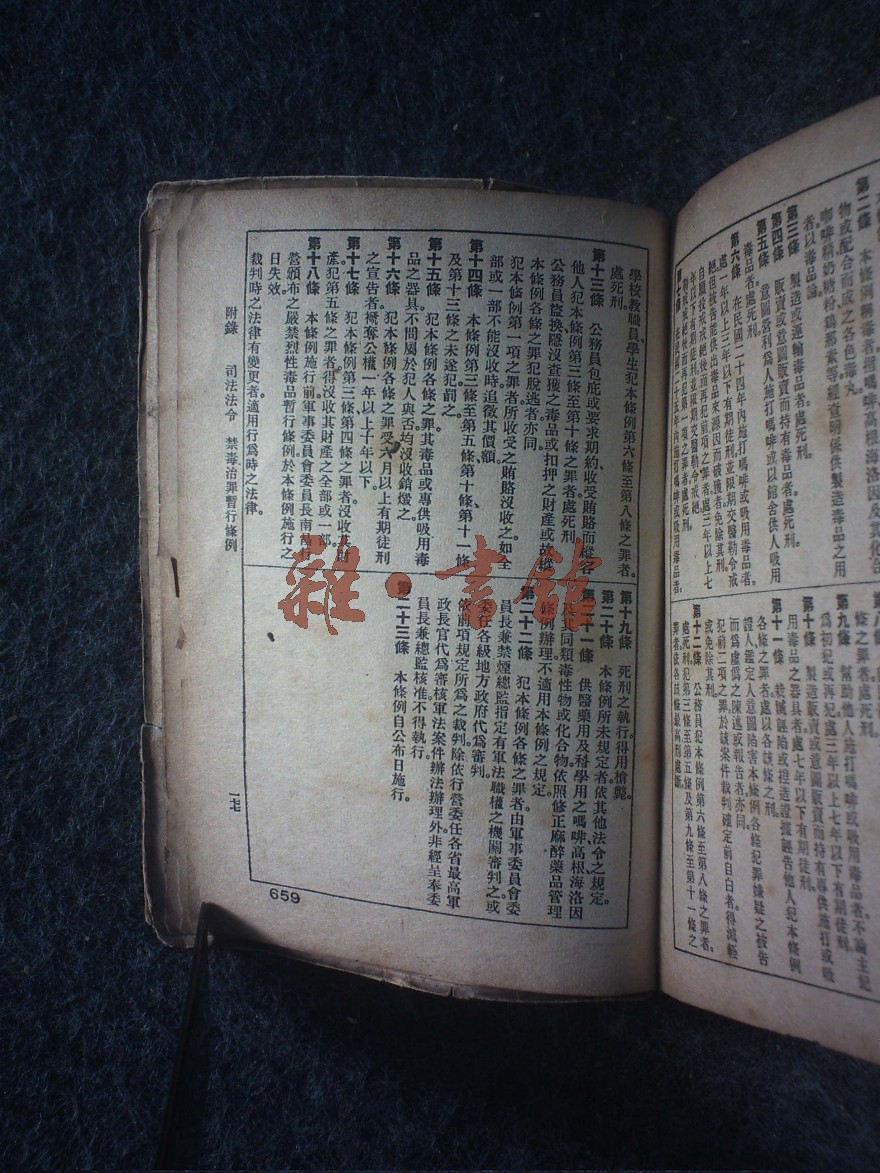 物或配合而成之各色毒丸。
咖啡精奶糖粉爲那素等經查明係供製造毒品之用
者以毒品論。
第三條　製造或運輸毒品者處死刑。
第四條　販賣或意圖販賣而持有毒品者處死刑。
第五條　意圖營利爲人施打嗎啡或以館舍供人吸用
毒品者處死刑。
第六條　在民國二十四年內施打嗎啡或吸用毒品者
處一年以上三年以下有期徒刑並限期交醫勒令戒
絕但被吿能供出毒品來源因而破獲者免除其刑。
條之罪者處死刑。
第九條　幫助他人施打嗎啡或吸用毒品者不論主犯
爲初犯或再犯處三年以上七年以下有期徒刑。
第十條　製造販賣或意圖販賣而持有專供施打或吸
用毒品之器具者處七年以下有期徒刑。
第十一條　栽贓誣陷或捏造證據誣告他人犯本條例
各條之罪者處以各該條之刑。
證人鑑定人意圖陷害本條例各條犯罪嫌疑之被告
而爲虛僞之陳述或報告者亦同。
犯前二項之罪於該案件裁判確定前自白者得減輕
或免除其刑。
第十二條　公務員犯本條例第六條至第八條之罪者。
處死刑犯第三條至第五條及第九條至第十一條之
罪者依各該條最高刑處斷。
學校教職員、學生犯本條例第六條至第八條之罪者。
處死刑。
第十三條　公務員包庇或要求期約收受賄賂而縱容
他人犯本條例第三條至第十條之罪者處死刑。
公務員盜換隱沒查獲之毒品或扣押之財產或故縱
本條例各條之罪犯脫逃者亦同。
犯本條例第一項之罪者所收受之賄賂沒收之如全
部或一部不能沒收時追徵其價額。
第十四條　犯本條例第三條至第五條第十條第十一條
及第十三條之未遂犯罰之。
第十五條　犯本條例各條之罪其毒品或專供吸用毒
品之器具不問屬於犯人與否均沒收銷燬之。
第十六條　犯本條例各條之罪受六月以上有期徒刑
之宣告者褫奪公權一年以上十年以下。
第十七條　犯本條例第三條第四條之罪者沒收其財
產。犯第五條之罪者得沒收其財產之全部或一部。
第十八條　本條例施行前軍事委員會委員長南昌行
營頒布之嚴禁烈性毒品暫行條例於本條例施行之
日失效。
裁判時之法律有變更者適用行爲時之法律。
第十九條　死刑之執行。得用槍斃。
第二十條　本條例所未規定者依其他法令之規定。
第二十一條　供醫藥用及科學用之嗎啡高根海洛因
及其同類毒性物或化合物依照修正麻醉藥品管理
條例辦理不適用本條例之規定。
第二十二條　犯本條例各條之罪者。由軍事委員會委
員長兼禁煙總監指定有軍法職權之機關審判之或
委任各級地方政府代爲審判。
依前項規定所爲之裁判。除依行營委任各省最高軍
政長官代爲審核軍法案件辦法辦理外非經呈奉委
員長兼總監核准不得執行。
第二十三條　本條例自公布日施行。
附錄　司法法令　禁毒治罪暫行條例
一七
659
雜·書館